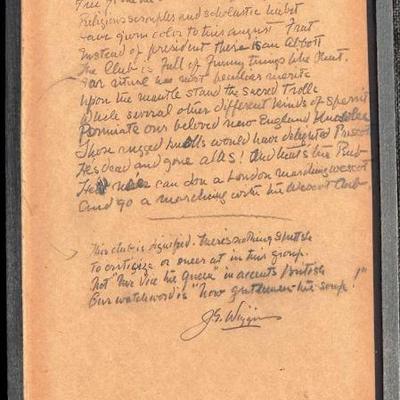 Religious scruples and scholastic habit
Have given color to this august Frat
Instead of president there is an Abbott
The Club is full of funny things like that.
Our ritual has most peculiar merits
Upon the mantle stand the sacred Trolls
While several other different kinds of spirits
Permiate our beloved New England
Those rugged would have delighted
He's dead and gone alas! And that's the Rub
He can don a London marching wescot
And go a marching with the Wescot Club.
This club is dignified. There's nothing skittish
To criticize or sneer at in this group.
Not "Mr Vice the Queen" in accents British
Our watchword is "Now gentlemen the soup!"
J.G. Wiggin